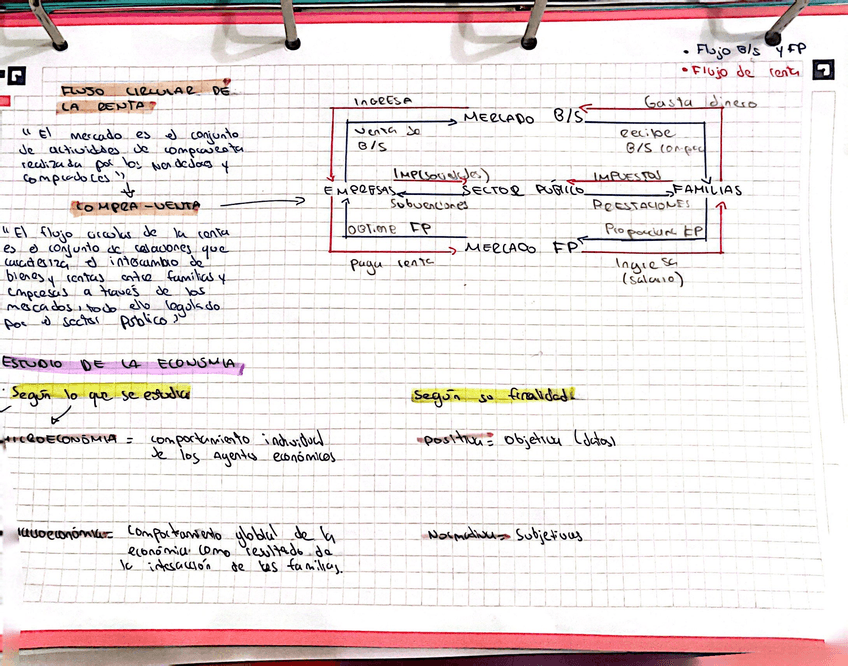 • Flujo B/S y FP
• Flujo de renta
FLUJO CIRCULAR DE
LA RENTA
"El mercado es el conjunto
de actividades de compraventa
realizada por los vendedores y
compradores"
COMPRA-VENTA
"El flujo circular de la renta
es el conjunto de relaciones que
caracteriza el intercambio de
bienes y rentas entre familias y
empresas a través de los
mercados, todo ello regulado
por el sector público"
INGRESA
Gasta dinero
MERCADO B/S
Venta de
B/S
Recibe
B/S compra
IMP(sociedades)
IMPUESTOS
EMPRESAS
SECTOR PÚBLICO
FAMILIAS
Subvenciones
PRESTACIONES
OBTIENE FP
Proporciona FP
MERCADO FP
Paga renta
Ingresa
(salario)
ESTUDIO DE LA ECONOMIA
Según lo que se estudia
Según su finalidad
MICROECONOMIA = comportamiento individual
de los Agentes económicos
Positiva = Objetiva (datos)
Macroeconómia = Comportamiento global de la
económia como resultado de
la interacción de las familias.
Normativa = Subjetivas